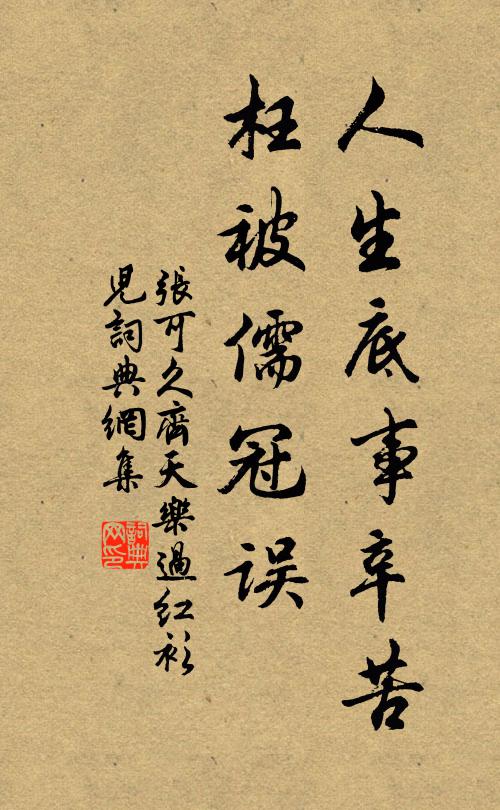 人生底事辛苦
枉被儒冠误
張可久齊天樂過红衫
児詞典網集
詞典网印